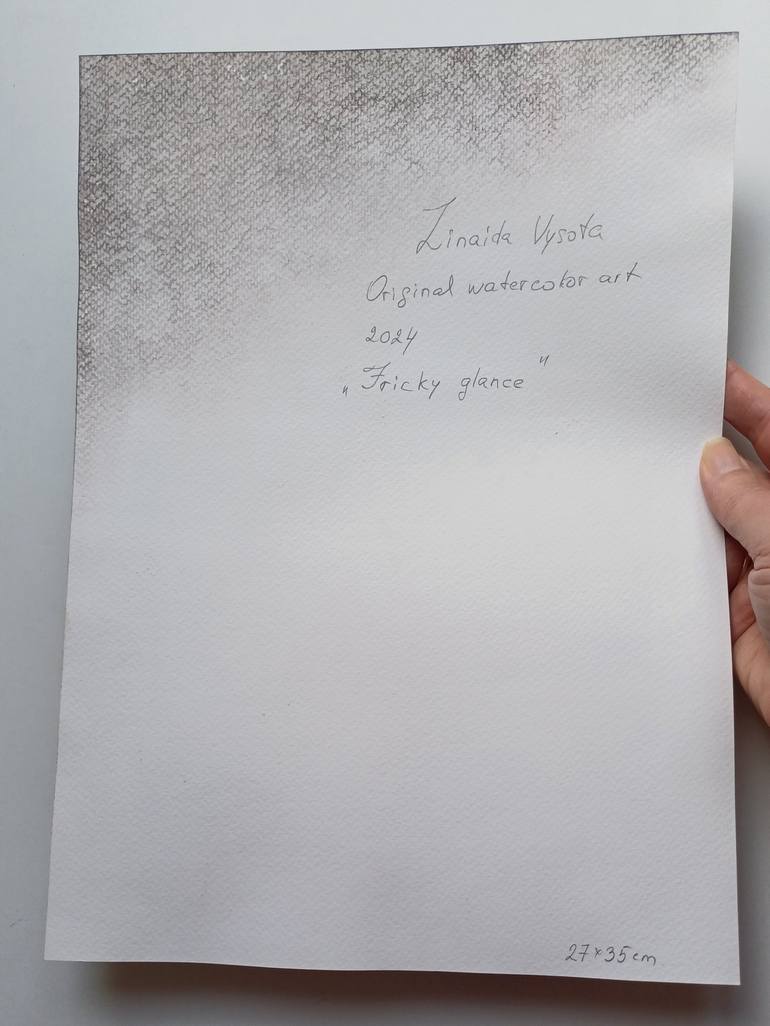 Zinaida Vysota
Original watercolor art
2024
„Tricky glance"
27×35cm